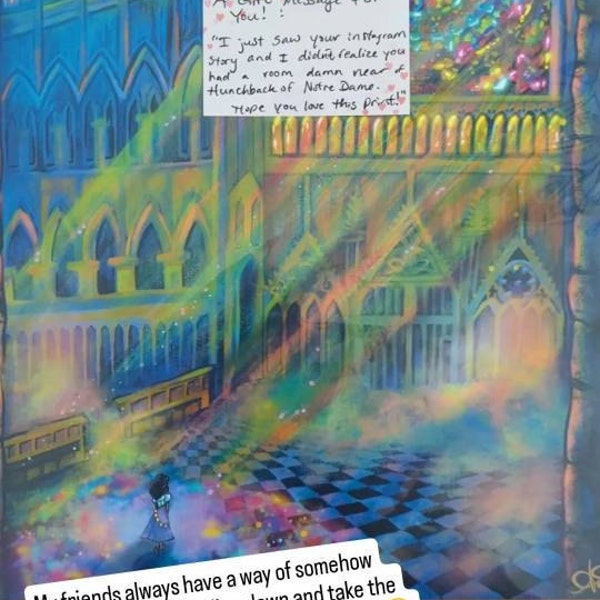 You! :
"I just saw your instagram
story and I didn't realize you
had a room damn near of
Hunchback of Notre Dame.
Hope you love this print!"
friends always have a way of somehow
down and take the